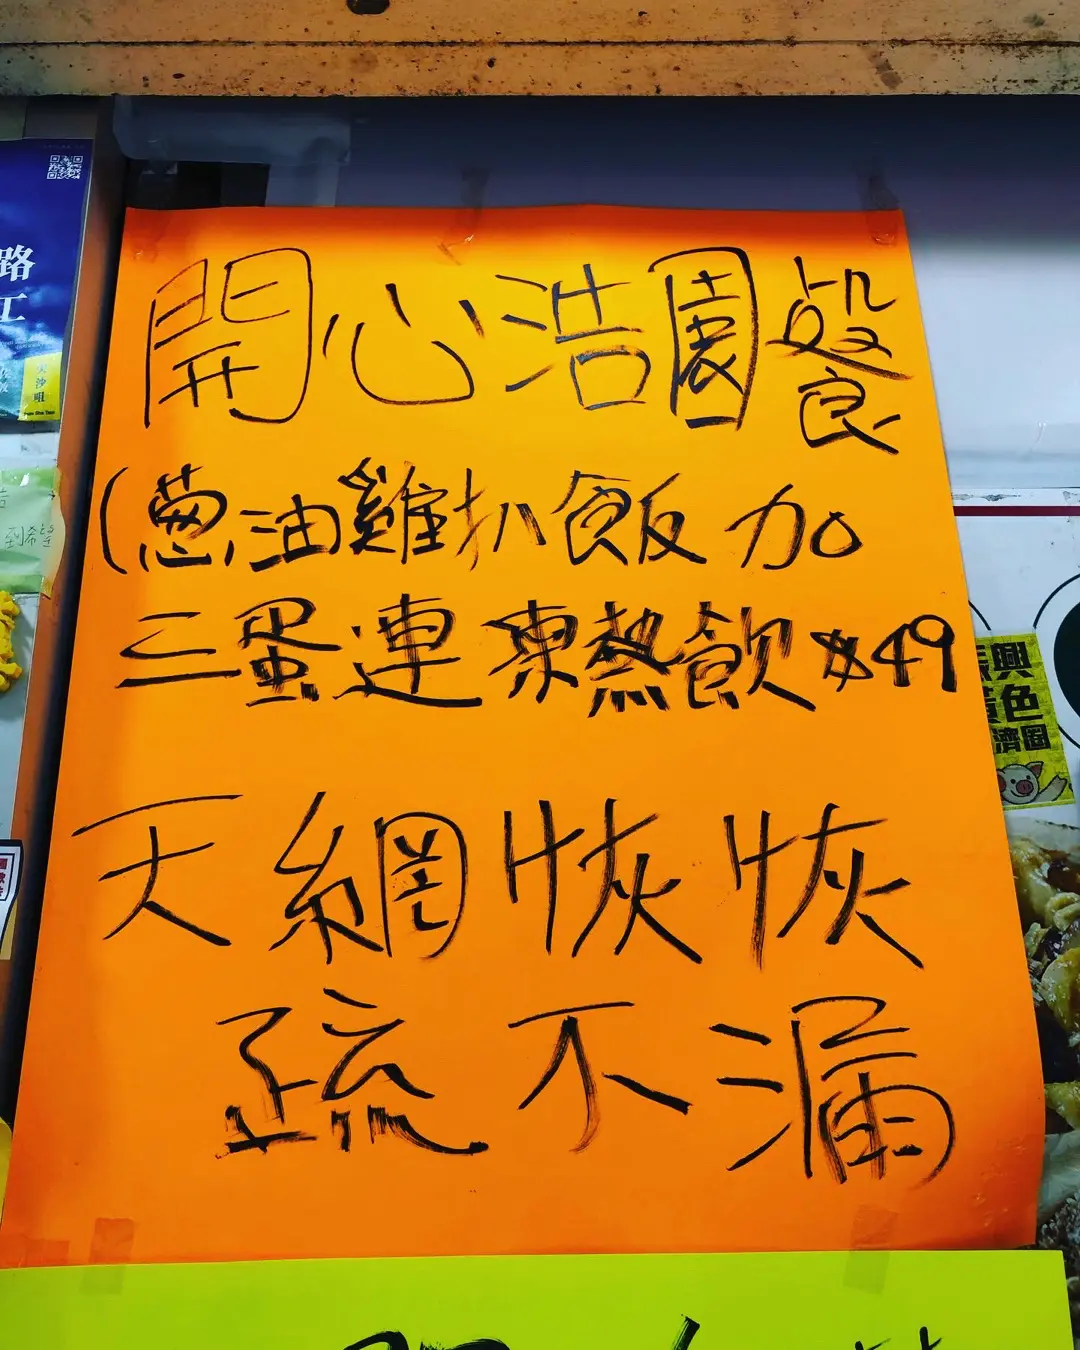 開心浩園餐
(蔥油雞扒飯加
三蛋連凍熱飲$49
天網恢恢
疏不漏
路
工
尖沙咀
Tsim Sha Tsui
到希望
興
黃色
濟圈